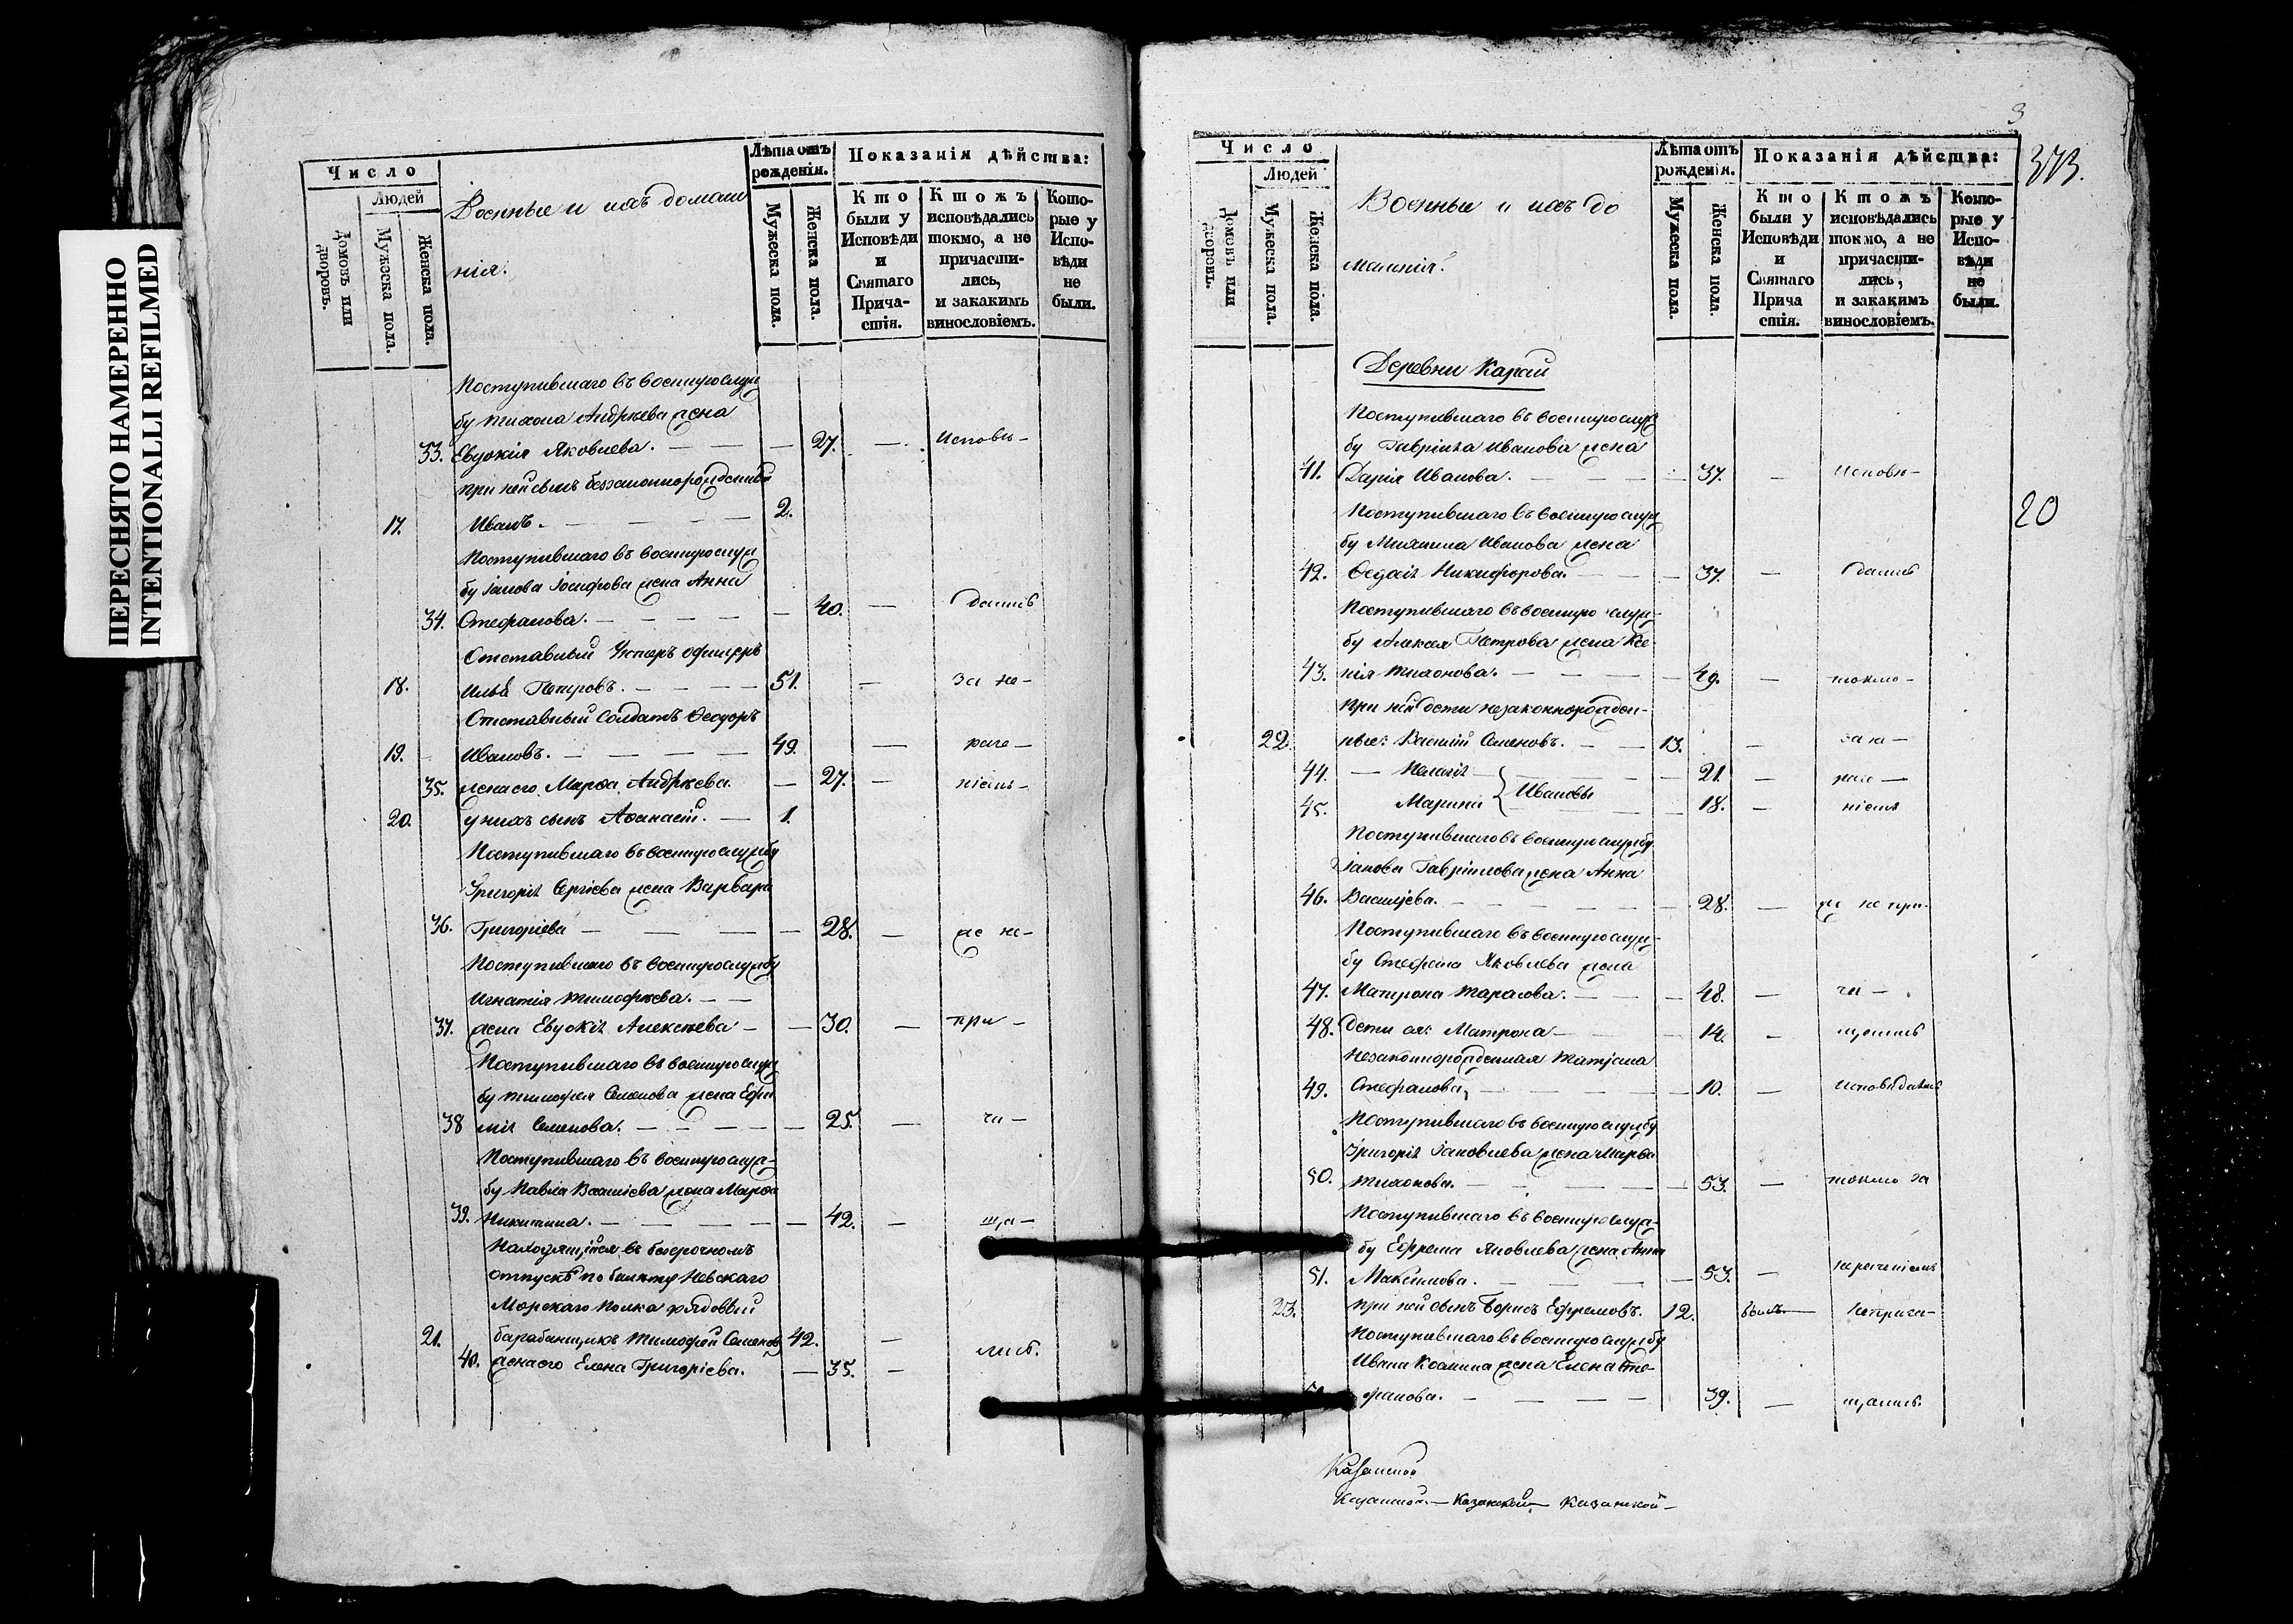 ПЕРЕСНЯТО НАМЕРЕННО
INTENTIONALLI REFILMED
Число
Людей
Домовъ или дворовъ.
Мужеска пола.
Женска пола.
Военные и ихъ домаш
нія.
Лѣта отъ рожденія.
Мужеска пола.
Женска пола.
Показанія дѣйства:
Кто были у Исповѣди и Святаго Прича-стія.
Ктожъ исповѣдались токмо, а не причасти-лись, и закакимъ винословіемъ.
Кото-рые у Испо-вѣди не были.
Поступившаго въ военную служ
бу Тихона Андреева жена
33. Евдокія Яковлева. — — — 27. — Исповѣ-
при ней сынъ беззаконнорожденный
17. Иванъ. — — — — 2.
Поступившаго въ военную служ
бу Іакова Іосифова жена Анна
34. Стефанова. — — — — 40. — дались
Отставный Унтеръ офицеръ
18. Илья Петровъ. — — — — 51. — за не-
Отставный Солдатъ Ѳеодоръ
19. Ивановъ. — — — — 49. — раче-
35. жена его Марѳа Андреева. — 27. — ніемъ-
20. у нихъ сынъ Аѳанасій. — 1.
Поступившаго въ военную службу
Григорія Сергіева жена Варвара
36. Григоріева — — — — 28. — же не-
Поступившаго въ военную службу
Игнатія Тимофеева. — —
37. жена Евдокія Алексеева — — 30. — при-
Поступившаго въ военную служ
бу Тимофея Семенова жена Ефи
38 мія Семенова. — — — — — 25. — ча-
Поступившаго въ военную служ-
бу Павла Василіева жена Марѳа
39. Никитина. — — — — — 42. — ща-
Находящійся въ безсрочномъ
отпускѣ по билету Невскаго
Морскаго полка рядовый
21. барабанщикъ Тимофей Семеновъ 42. —
40. жена его Елена Григоріева. — 35. — лись.
3
373.
20
Число
Людей
Домовъ или дворовъ.
Мужеска пола.
Женска пола.
Военные и ихъ до
машнія.
Лѣта отъ рожденія.
Мужеска пола.
Женска пола.
Показанія дѣйства:
Кто были у Исповѣди и Святаго Прича стія.
Ктожъ исповѣдались токмо, а не причасти-лись, и закакимъ винословіемъ.
Кото-рые у Испо-вѣди не были.
Деревни Карай
Поступившаго въ военную служ
бу Гавріила Иванова жена
41. Дарія Иванова. — — — — 37. — Исповѣ-
Поступившаго въ военную служ
бу Михаила Иванова жена
42. Ѳедосія Никифорова. — — — 37. — дались
Поступившаго въ военную служ-
бу Алексея Петрова жена Ксе-
43. нія Тихонова. — — — — 49. — токмо-
При ней дети незаконнорожден-
22. ные: Василій Семеновъ. — — 13. — за не-
44. — Пелагія — — — 21. — раче —
45. Марина } Ивановы — — 18. — ніемъ
Поступившаго въ военную службу
Іакова Гавріилова жена Анна
46. Василіева. — — — — — 28. — же не при-
Поступившаго въ военную служ-
бу Стефана Яковлева жена
47. Матрона Тарасова. — — — 48. — ча-
48. Дети ея: Матрона — — 14. — щались
Незаконнорожденная Татіана
49. Стефанова, — — — — 10. — исповѣдались
Поступившаго въ военную службу
Григорія Іаковлева жена Марѳа
50. Тихонова. — — — — — 53. — токмо за
Поступившаго въ военную служ-
бу Ефрема Яковлева жена Анна
51. Максимова. — — — — 53. — нераченіемъ
23. при ней сынъ Борисъ Ефремовъ. 12. былъ — неприча-
Поступившаго въ военную службу
Ивана Козмина жена Елена Сте-
фанова. — — — — 39. — щались.
Казанской
Казанской. — Казанской — Казанской —